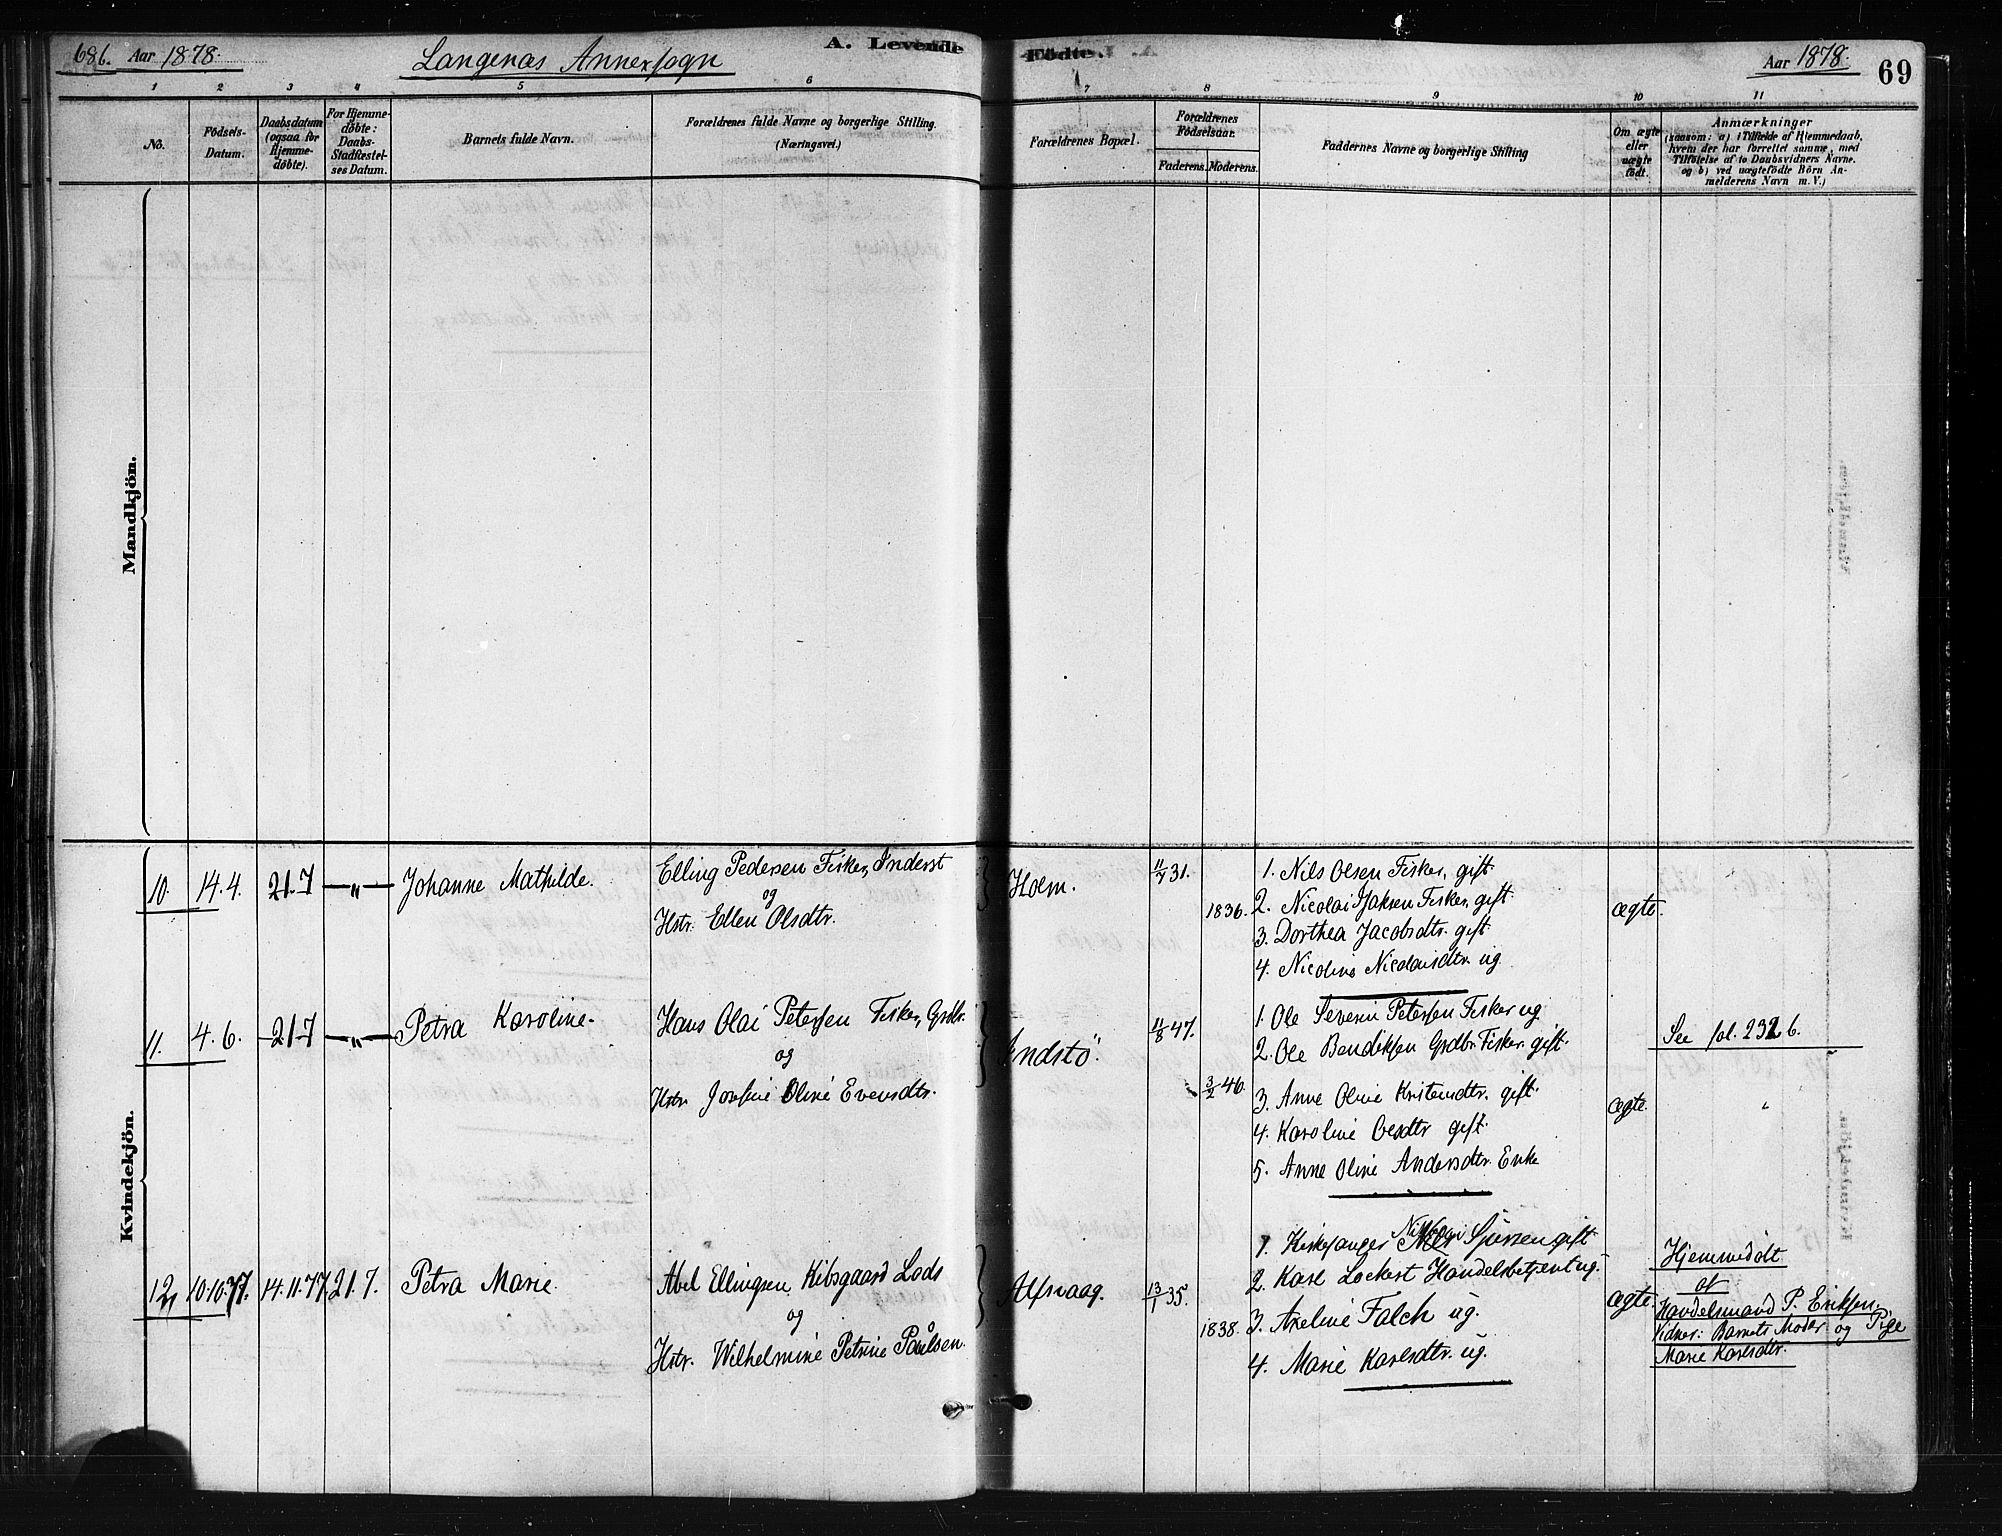 686. Aar 1878.
Langenæs Annexsogn
A. Levende
Födte.
Aar 1878.
69
1 2 3 4 5 6 7 8 9 10 11
No.
Födsels-
Datum.
Daabsdatum
(ogsaa for
Hjemme-
døbte).
For Hjemme-
døbte:
Daabs-
Stadfæstel-
ses Datum.
Barnets fulde Navn.
Forældrenes fulde Navne og borgerlige Stilling.
(Næringsvei.)
Forældrenes Bopæl.
Forældrenes
Födselsaar.
Faderens.
Moderens.
Faddernes Navne og borgerlige Stilling
Om ægte
eller
uægte
födt.
Anmærkninger
(saasom: a) i Tilfælde af Hjemmedaab,
hvem der har forrettet samme, med
Tilføielse af to Daabsvidners Navne.
og b) ved uægtefödte Börn An-
melderens Navn m. V.)
Mandkjön.
Kvindekjön.
10. 14.4. 21.7 —„— Johanne Mathilde.
Elling Pedersen Fisker, Inderst
og
Hstr. Ellen Olsdtr.
Holm.
11/7 31.
1836.
1. Nils Olsen Fisker, gift
2. Nicolai Isaksen Fisker, gift.
3. Dorthea Jacobsdtr. gift.
4. Nicoline Nicolaisdtr. ug
ægte.
11. 4.6. 21.7 —„— Petra Karoline.
Hans Olai Petersen Fisker, Grdbr.
og
Hstr. Josefine Oline Evensdtr.
Indstö.
11/8 47.
3/2 46.
1. Ole Severin Petersen Fisker ug
2. Ole Bendiksen Grdbr. Fisker. gift.
3. Anne Oline Kristensdtr. gift.
4. Karoline Oesdtr gift.
5. Anne Oline Andersdtr. Enke
ægte.
See fol. 232 b.
12, 10.10.77. 14.11.77. 21.7. Petra Marie.
Abel Ellingsen Kibsgaard Lods
og
Hstr. Wilhelmine Petrine Paulsen.
Alfsvaag.
13/1 35.
1838.
1. Kirkesanger gift
2. Karl Lockert Handelsbetjent ug.
3. Axeline Falch ug.
4. Marie Karlsdtr. ug.
ægte.
Hjemmedöbt
af
Handelsmand P. Eriksen.
Vidner: Barnets Moder og Pige
Marie Karlsdtr.